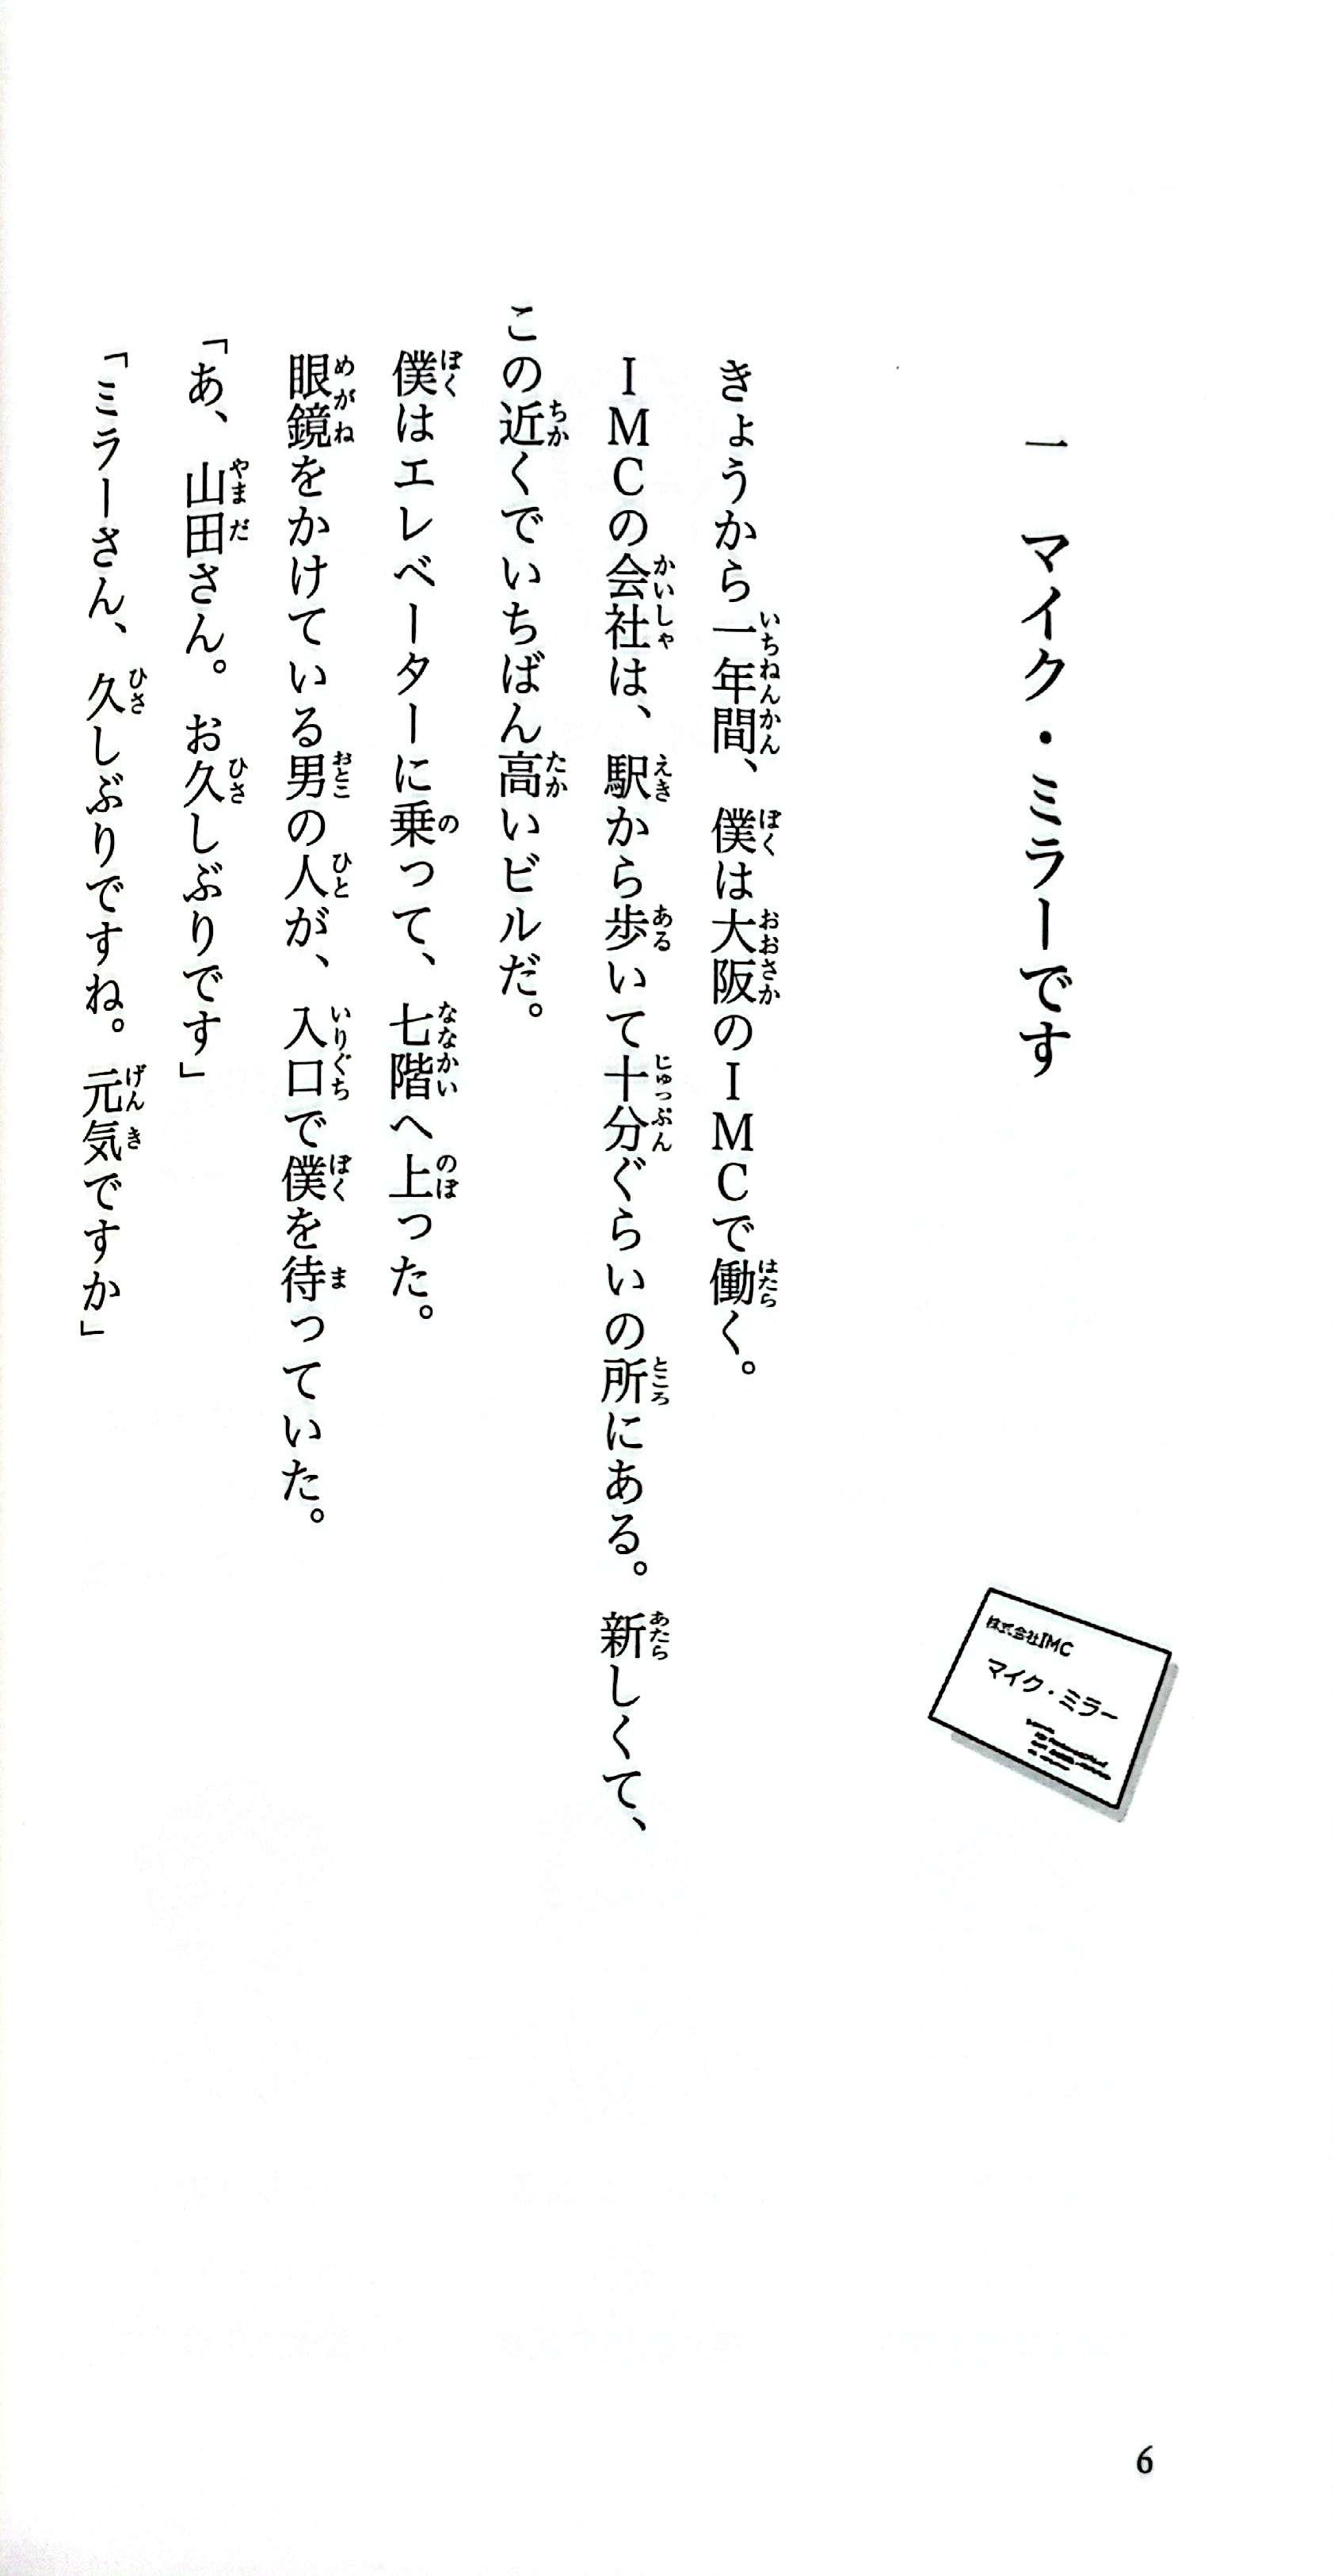 一　マイク・ミラーです
きょうから一年間、僕は大阪のIMCで働く。
IMCの会社は、駅から歩いて十分ぐらいの所にある。新しくて、
この近くでいちばん高いビルだ。
僕はエレベーターに乗って、七階へ上った。
眼鏡をかけている男の人が、入口で僕を待っていた。
「あ、山田さん。お久しぶりです」
「ミラーさん、久しぶりですね。元気ですか」
株式会社IMC
マイク・ミラー
6